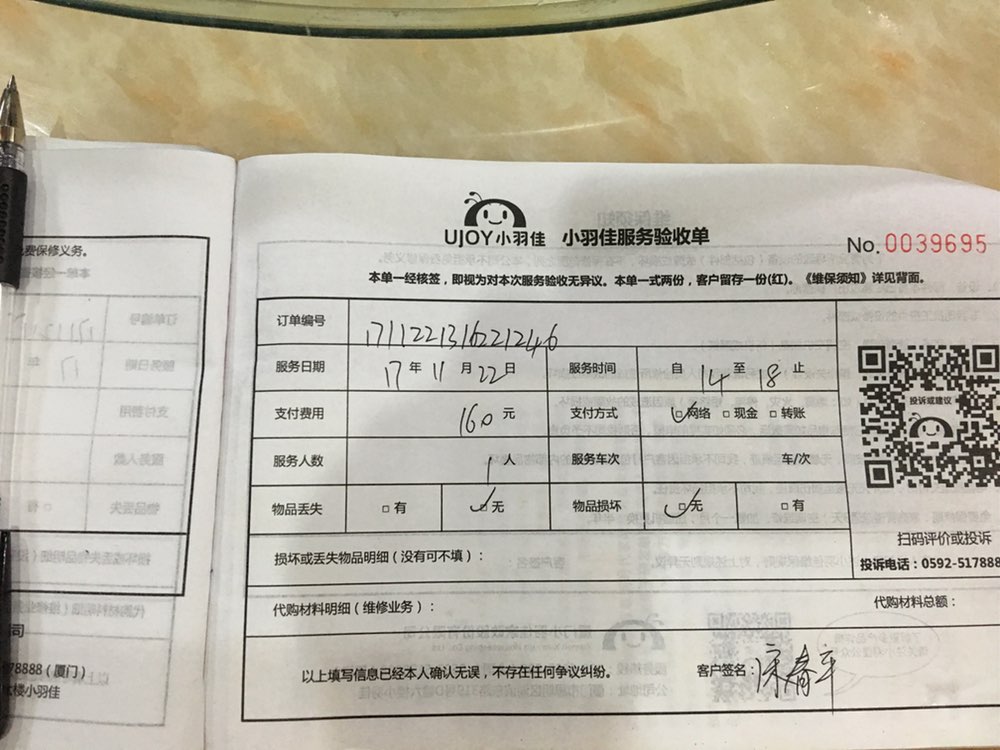 免费保修义务。
UJOY小羽佳 小羽佳服务验收单
No. 0039695
本单一经核签，即视为对本次服务验收无异议。本单一式两份，客户留存一份(红)。《维保须知》详见背面。
订单编号 1711221316221246
服务日期 17 年 11 月 22 日 服务时间 自 14 至 18 止
投诉或建议
支付费用 160 元 支付方式 □网络 □现金 □转账
服务人数 1 人 服务车次 车/次
物品丢失 □有 □无 物品损坏 □无 □有
扫码评价或投诉
损坏或丢失物品明细（没有可不填）：
投诉电话：0592-517888
代购材料明细（维修业务）：
代购材料总额：
司
78888（厦门）
楼小羽佳
以上填写信息已经本人确认无误，不存在任何争议纠纷。
客户签名：